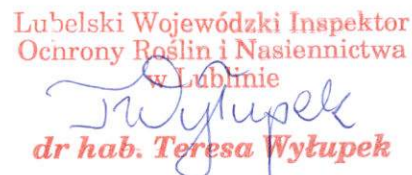 Lubelski Wojewódzki Inspektor
Ochrony Roślin i Nasiennictwa
w Lublinie
TWyłupek
dr hab. Teresa Wyłupek